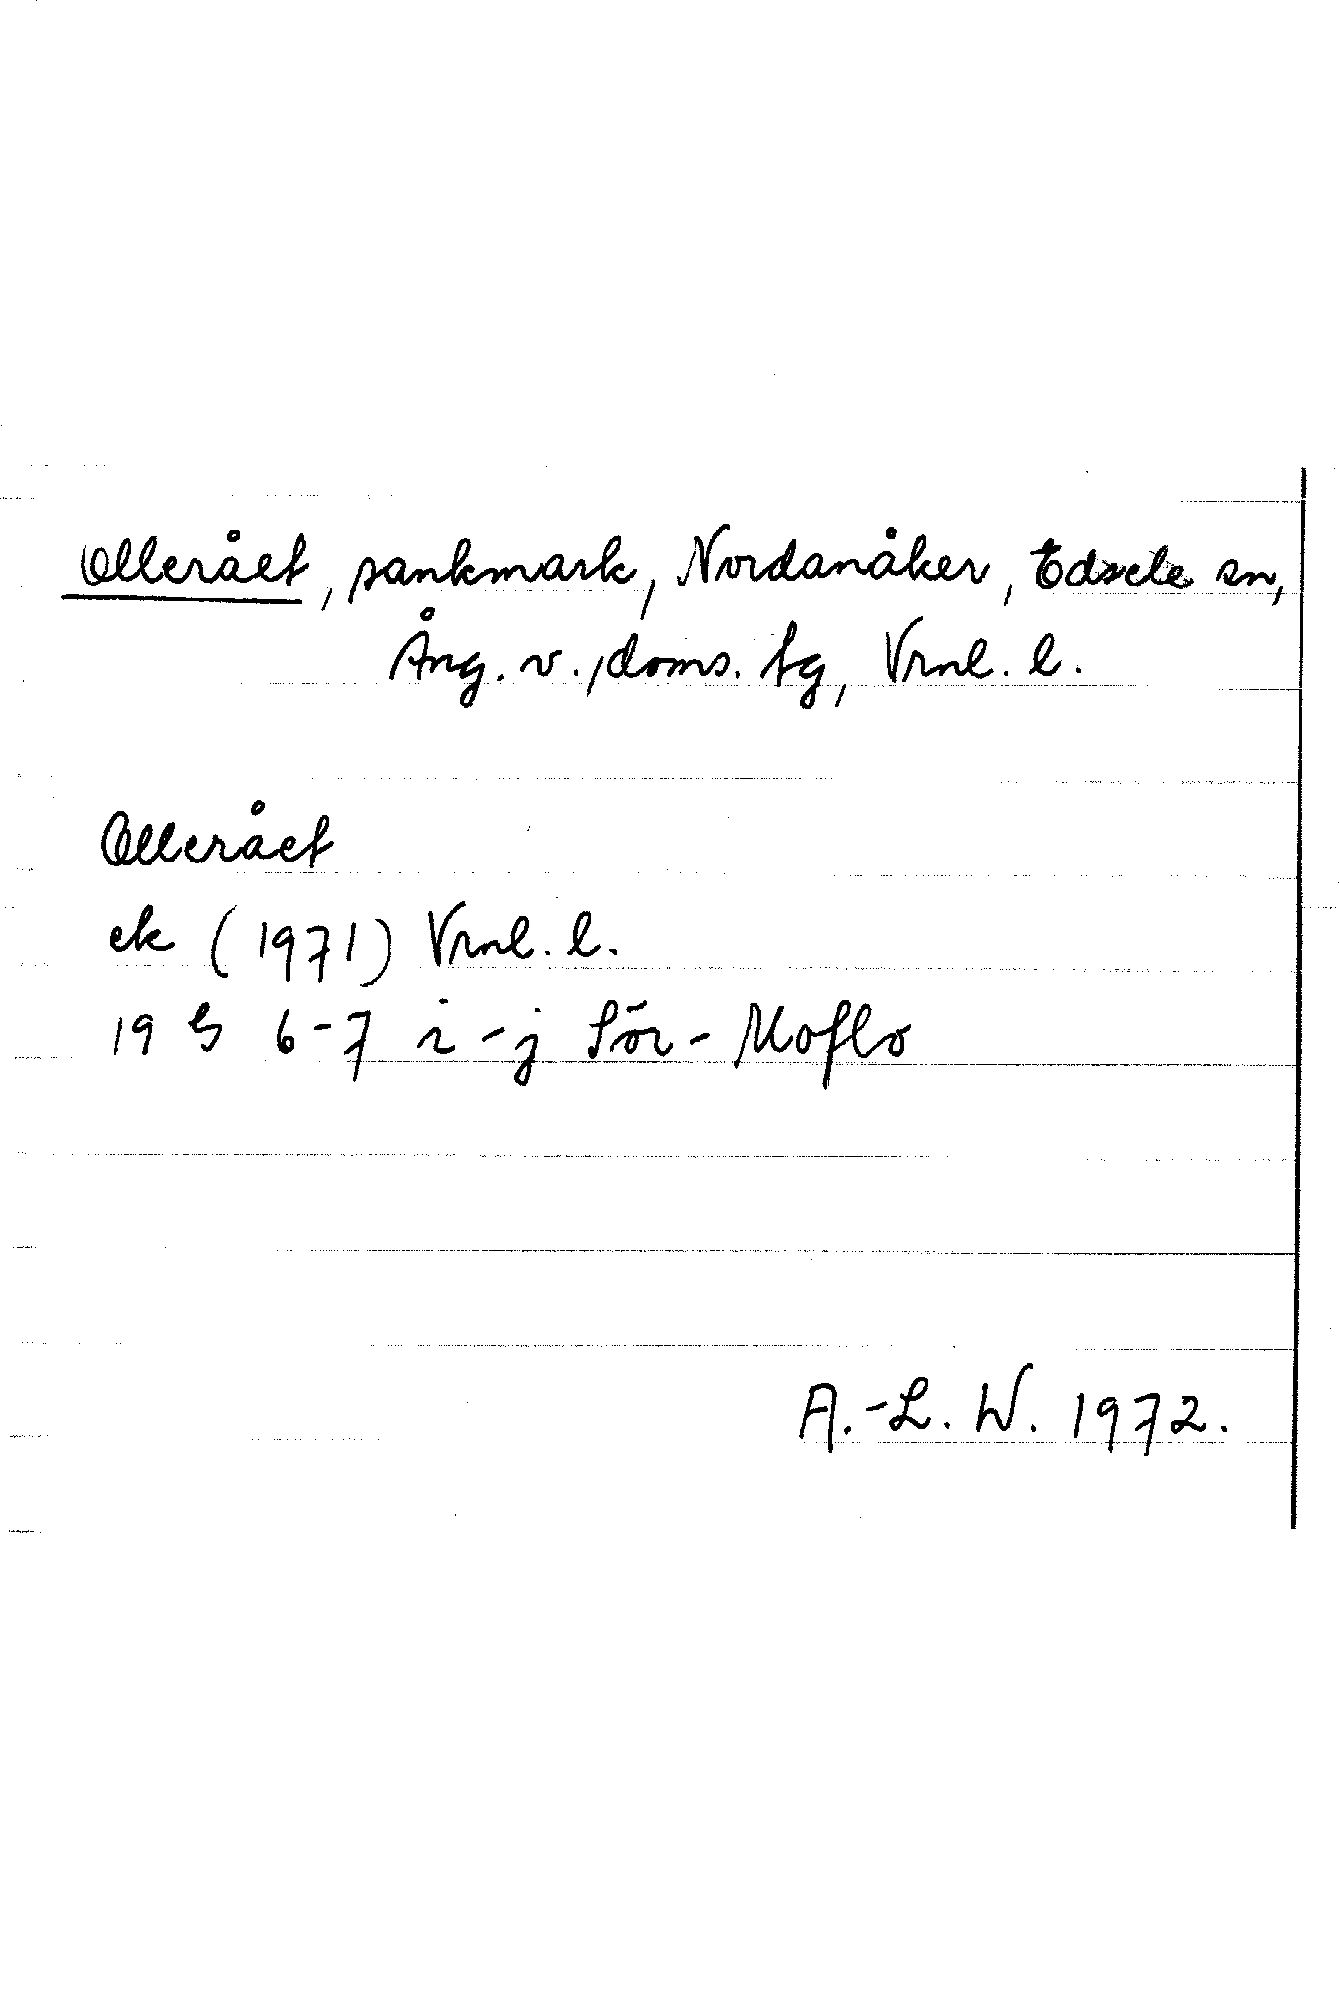 Ollerået, sankmark, Nordanåker, Edsele sn,
Ång. v., doms. tg, Vrnl. l.
Ollerået
ek (1971) Vrnl. l.
19 G 6-7 i-j Sör-Moflo
A.-L. W. 1972.